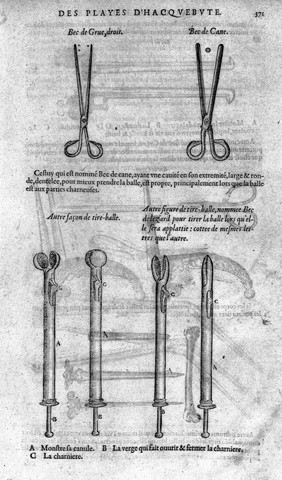 DES PLAYES D'HACQVEBVTE.
371
Bec de Grue, droit.
Bec de Cane.
Cestuy qui est nommé Bec de cane, ayant vne cauité en son extremité, large & ron-
de, dentelee, pour mieux prendre la balle, est propre, principalement lors que la balle
est aux parties charneuses.
Autre façon de tire-balle.
Autre figure de tire-balle, nommee Bec
de lezard pour tirer la balle lors qu'el-
le sera applattie : cottee de mesmes let-
tres que l'autre.
C
C
C
A
A
B
B
A Monstre sa canule. B La verge qui fait ouurir & fermer la charniere.
C La charniere.